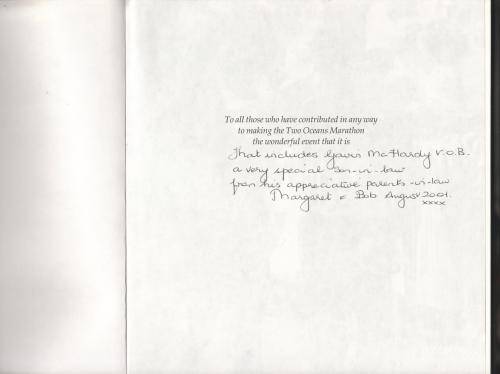 To all those who have contributed in any way
to making the Two Oceans Marathon
the wonderful event that it is
That includes Gavin McHardy V.O.B.
a very special son-in-law
from his appreciative parents-in-law
Margaret & Bob August 2001.
xxxx